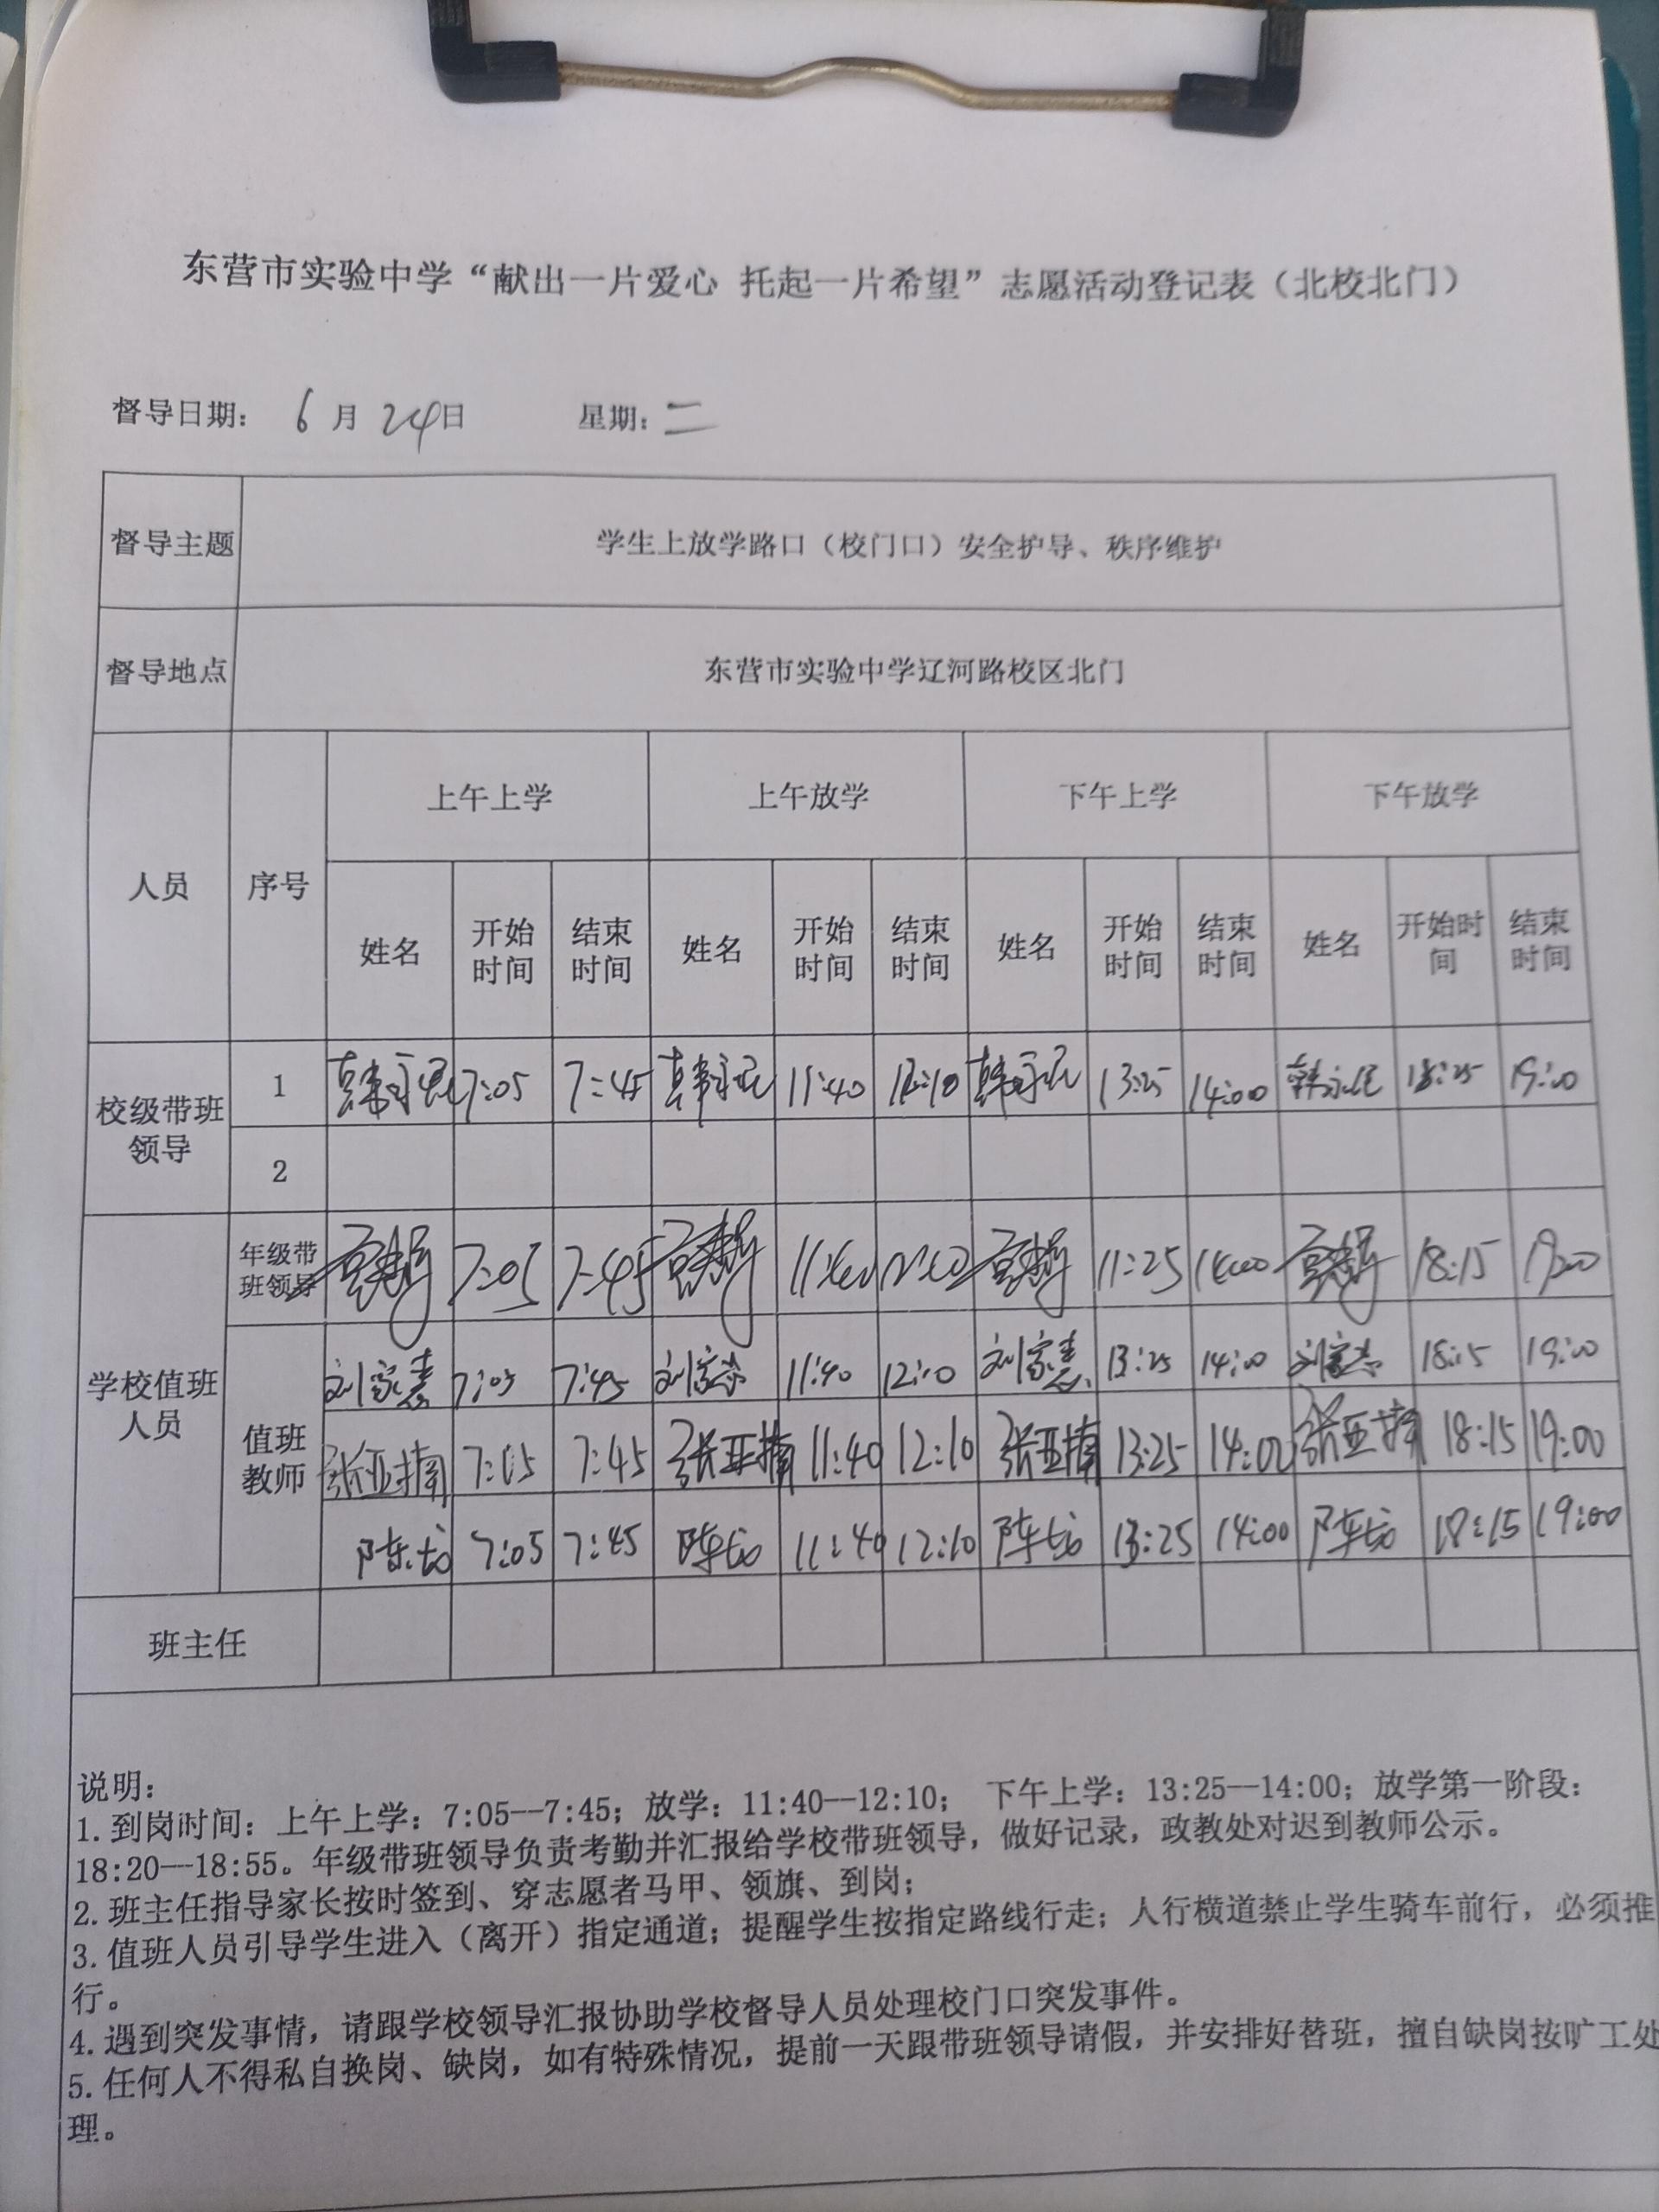 东营市实验中学“献出一片爱心 托起一片希望”志愿活动登记表（北校北门）
督导日期： 6 月 24 日 星期：二
督导主题 学生上放学路口（校门口）安全护导、秩序维护
督导地点 东营市实验中学辽河路校区北门
人员 序号 上午上学 上午放学 下午上学 下午放学
姓名 开始时间 结束时间 姓名 开始时间 结束时间 姓名 开始时间 结束时间 姓名 开始时间 结束时间
校级带班领导 1 韩永 7:05 7:45 韩永 11:40 12:10 韩永 13:25 14:00 韩永 18:25 19:00
2
学校值班人员 年级带班领导 7:05 7:45 11:40 11:25 14:00 18:15 19:00
值班教师 刘家 7:05 7:45 刘家 11:40 12:10 刘家 13:25 14:00 刘家 18:15 19:00
张亚楠 7:05 7:45 张亚楠 11:40 12:10 张亚楠 13:25 14:00 张亚楠 18:15 19:00
陈 7:05 7:45 陈 11:40 12:10 陈 13:25 14:00 陈 18:15 19:00
班主任
说明：
1.到岗时间：上午上学：7:05--7:45；放学：11:40--12:10； 下午上学：13:25--14:00；放学第一阶段：
18:20--18:55。年级带班领导负责考勤并汇报给学校带班领导，做好记录，政教处对迟到教师公示。
2.班主任指导家长按时签到、穿志愿者马甲、领旗、到岗；
3.值班人员引导学生进入（离开）指定通道；提醒学生按指定路线行走；人行横道禁止学生骑车前行，必须推
行。
4.遇到突发事情，请跟学校领导汇报协助学校督导人员处理校门口突发事件。
5.任何人不得私自换岗、缺岗，如有特殊情况，提前一天跟带班领导请假，并安排好替班，擅自缺岗按旷工处
理。